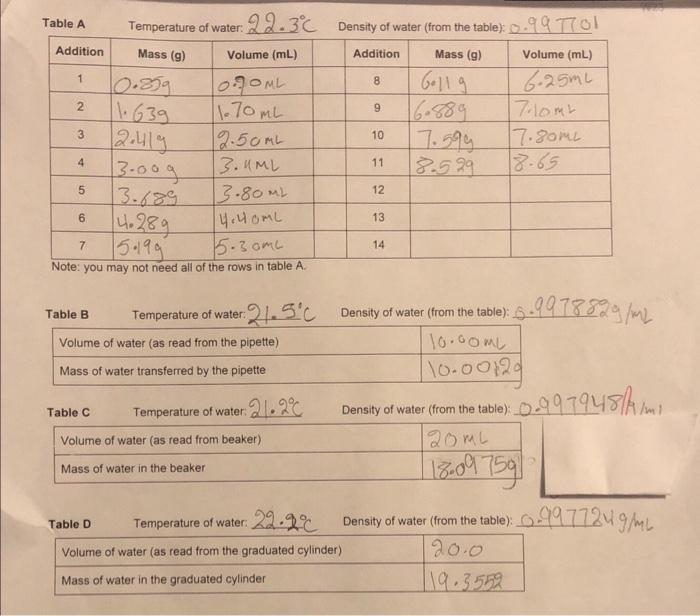 Table A Temperature of water: 22.3°C Density of water (from the table): 0.997701
Addition Mass (g) Volume (mL) Addition Mass (g) Volume (mL)
1 0.85g 0.90mL 8 6.11g 6.25mL
2 1.63g 1.70mL 9 6.88g 7.10mL
3 2.41g 2.50mL 10 7.59g 7.80mL
4 3.00g 3.11mL 11 8.52g 8.65
5 3.68g 3.80mL 12
6 4.28g 4.40mL 13
7 5.19g 5.30mL 14
Note: you may not need all of the rows in table A.
Table B Temperature of water: 21.5°C Density of water (from the table): 0.997882g/mL
Volume of water (as read from the pipette) 10.00mL
Mass of water transferred by the pipette 10.0012g
Table C Temperature of water: 21.2°C Density of water (from the table): 0.997948 /ml
Volume of water (as read from beaker) 20mL
Mass of water in the beaker 18.0975g
Table D Temperature of water: 22.2°C Density of water (from the table): 0.997724g/mL
Volume of water (as read from the graduated cylinder) 20.0
Mass of water in the graduated cylinder 19.3552